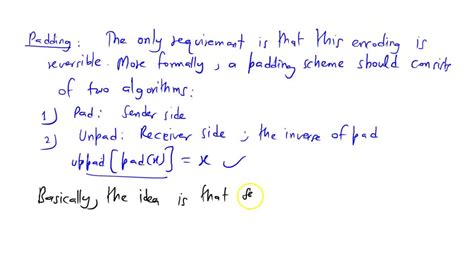 Padding: The only requirement is that this encoding is
reversible. More formally, a padding scheme should consists
of two algorithms:
1) Pad: Sender side
2) Unpad: Receiver side ; the inverse of pad
uppad[pad(x)] = x ✓
Basically, the idea is that